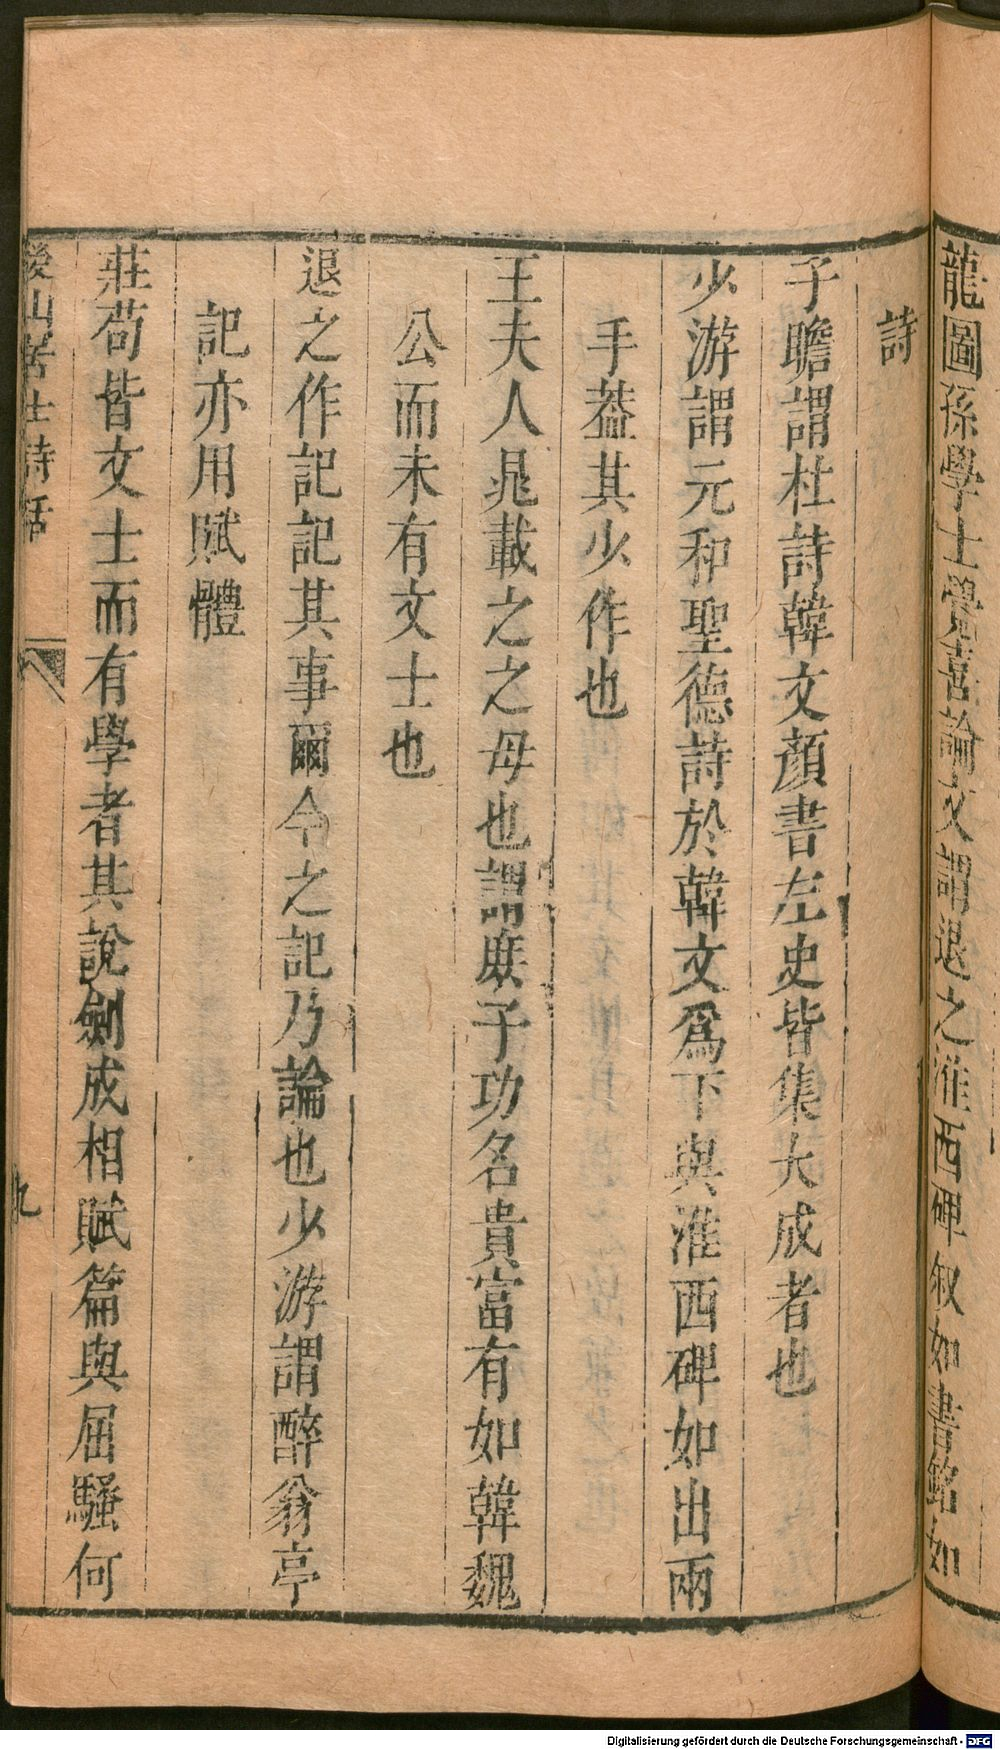 龍圖孫學士覺喜論文謂退之淮西碑叙如書銘如
詩
子瞻謂杜詩韓文顏書左史皆集大成者也
少游謂元和聖德詩於韓文爲下與淮西碑如出兩
手葢其少作也
王夫人晁載之之母也謂庶子功名貴富有如韓魏
公而未有文士也
退之作記記其事爾今之記乃論也少游謂醉翁亭
記亦用賦體
莊荀皆文士而有學者其說劍成相賦篇與屈騷何
後山居士詩話
九
Digitalisierung gefördert durch die Deutsche Forschungsgemeinschaft - DFG